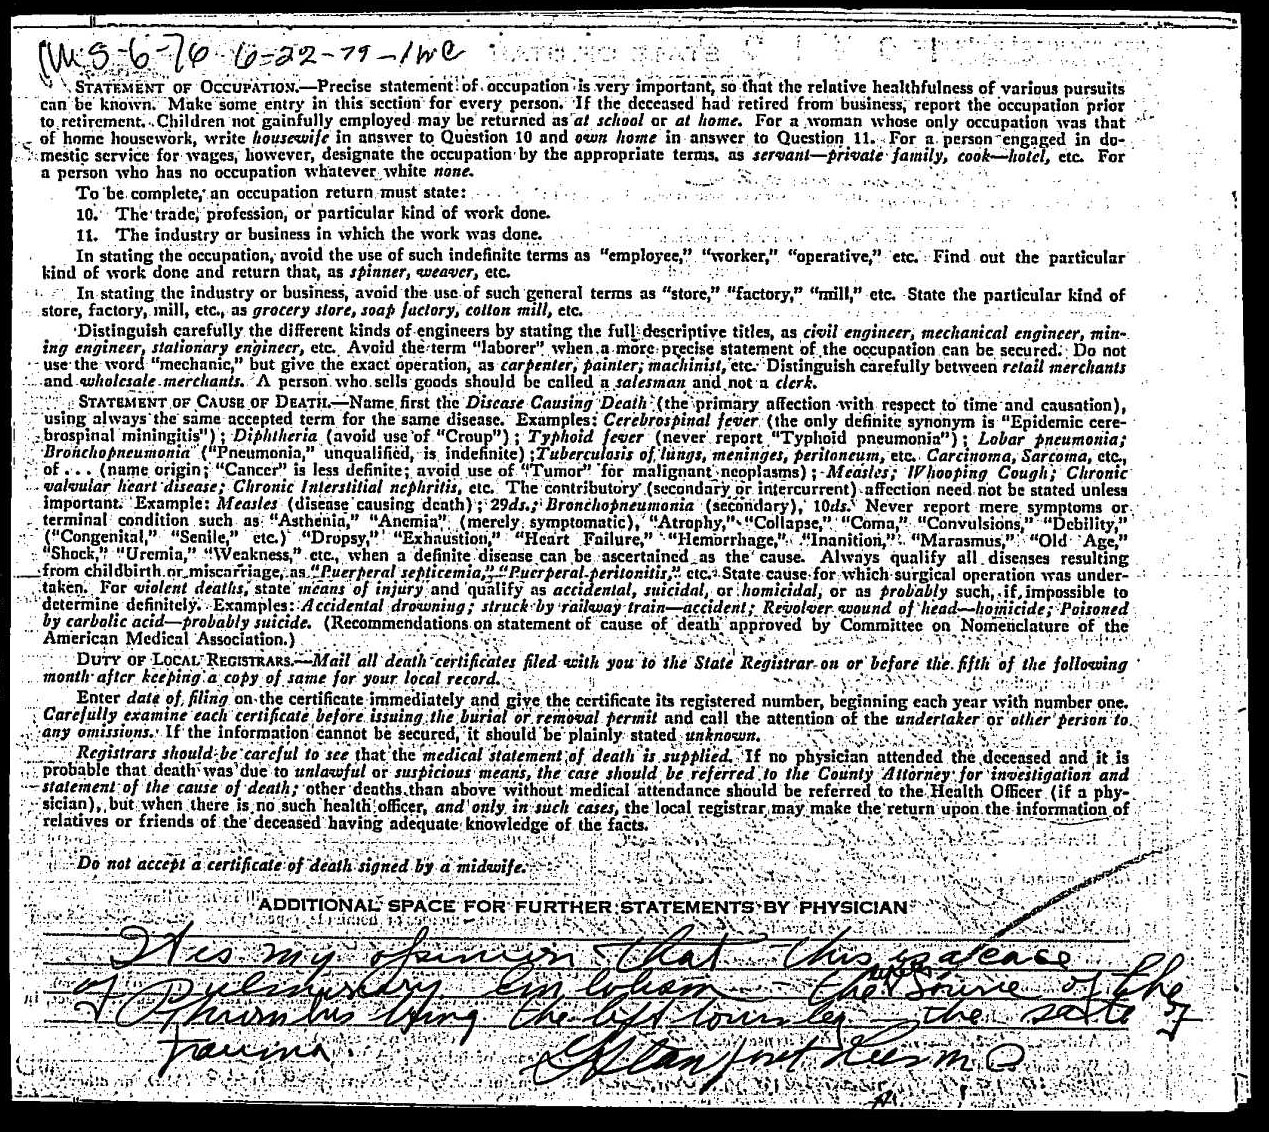 5-6-76 6-22-79-
STATEMENT OF OCCUPATION.—Precise statement of occupation is very important, so that the relative healthfulness of various pursuits
can be known. Make some entry in this section for every person. If the deceased had retired from business, report the occupation prior
to retirement. Children not gainfully employed may be returned as at school or at home. For a woman whose only occupation was that
of home housework, write housewife in answer to Question 10 and own home in answer to Question 11. For a person engaged in do-
mestic service for wages, however, designate the occupation by the appropriate terms, as servant—private family, cook—hotel, etc. For
a person who has no occupation whatever white none.
To be complete, an occupation return must state:
10. The trade, profession, or particular kind of work done.
11. The industry or business in which the work was done.
In stating the occupation, avoid the use of such indefinite terms as "employee," "worker," "operative," etc. Find out the particular
kind of work done and return that, as spinner, weaver, etc.
In stating the industry or business, avoid the use of such general terms as "store," "factory," "mill," etc. State the particular kind of
store, factory, mill, etc., as grocery store, soap factory, cotton mill, etc.
Distinguish carefully the different kinds of engineers by stating the full descriptive titles, as civil engineer, mechanical engineer, min-
ing engineer, stationary engineer, etc. Avoid the term "laborer" when a more precise statement of the occupation can be secured. Do not
use the word "mechanic," but give the exact operation, as carpenter, painter, machinist, etc. Distinguish carefully between retail merchants
and wholesale merchants. A person who sells goods should be called a salesman and not a clerk.
STATEMENT OF CAUSE OF DEATH.—Name first the Disease Causing Death (the primary affection with respect to time and causation),
using always the same accepted term for the same disease. Examples: Cerebrospinal fever (the only definite synonym is "Epidemic cere-
brospinal miningitis"); Diphtheria (avoid use of "Croup"); Typhoid fever (never report "Typhoid pneumonia"); Lobar pneumonia;
Bronchopneumonia ("Pneumonia," unqualified, is indefinite); Tuberculosis of lungs, meninges, peritoneum, etc. Carcinoma, Sarcoma, etc.,
of . . . (name origin; "Cancer" is less definite; avoid use of "Tumor" for malignant neoplasms); Measles; Whooping Cough; Chronic
valvular heart disease; Chronic Interstitial nephritis, etc. The contributory (secondary or intercurrent) affection need not be stated unless
important. Example: Measles (disease causing death); 29ds.; Bronchopneumonia (secondary), 10ds. Never report mere symptoms or
terminal condition such as "Asthenia," "Anemia" (merely symptomatic), "Atrophy," "Collapse," "Coma," "Convulsions," "Debility,"
("Congenital," "Senile," etc.) "Dropsy," "Exhaustion," "Heart Failure," "Hemorrhage," "Inanition," "Marasmus," "Old Age,"
"Shock," "Uremia," "Weakness," etc., when a definite disease can be ascertained as the cause. Always qualify all diseases resulting
from childbirth or miscarriage, as "Puerperal septicemia," "Puerperal peritonitis," etc. State cause for which surgical operation was under-
taken. For violent deaths, state means of injury and qualify as accidental, suicidal, or homicidal, or as probably such, if impossible to
determine definitely. Examples: Accidental drowning; struck by railway train—accident; Revolver wound of head—homicide; Poisoned
by carbolic acid—probably suicide. (Recommendations on statement of cause of death approved by Committee on Nomenclature of the
American Medical Association.)
DUTY OF LOCAL REGISTRARS.—Mail all death certificates filed with you to the State Registrar on or before the fifth of the following
month after keeping a copy of same for your local record.
Enter date of filing on the certificate immediately and give the certificate its registered number, beginning each year with number one.
Carefully examine each certificate before issuing the burial or removal permit and call the attention of the undertaker or other person to
any omissions. If the information cannot be secured, it should be plainly stated unknown.
Registrars should be careful to see that the medical statement of death is supplied. If no physician attended the deceased and it is
probable that death was due to unlawful or suspicious means, the case should be referred to the County Attorney for investigation and
statement of the cause of death; other deaths than above without medical attendance should be referred to the Health Officer (if a phy-
sician), but when there is no such health officer, and only in such cases, the local registrar may make the return upon the information of
relatives or friends of the deceased having adequate knowledge of the facts.
Do not accept a certificate of death signed by a midwife.
ADDITIONAL SPACE FOR FURTHER STATEMENTS BY PHYSICIAN
It is my opinion that this is a case
of Pulmonary Embolism - the source of the
Thrombus being the left lower leg - the site of
Trauma.